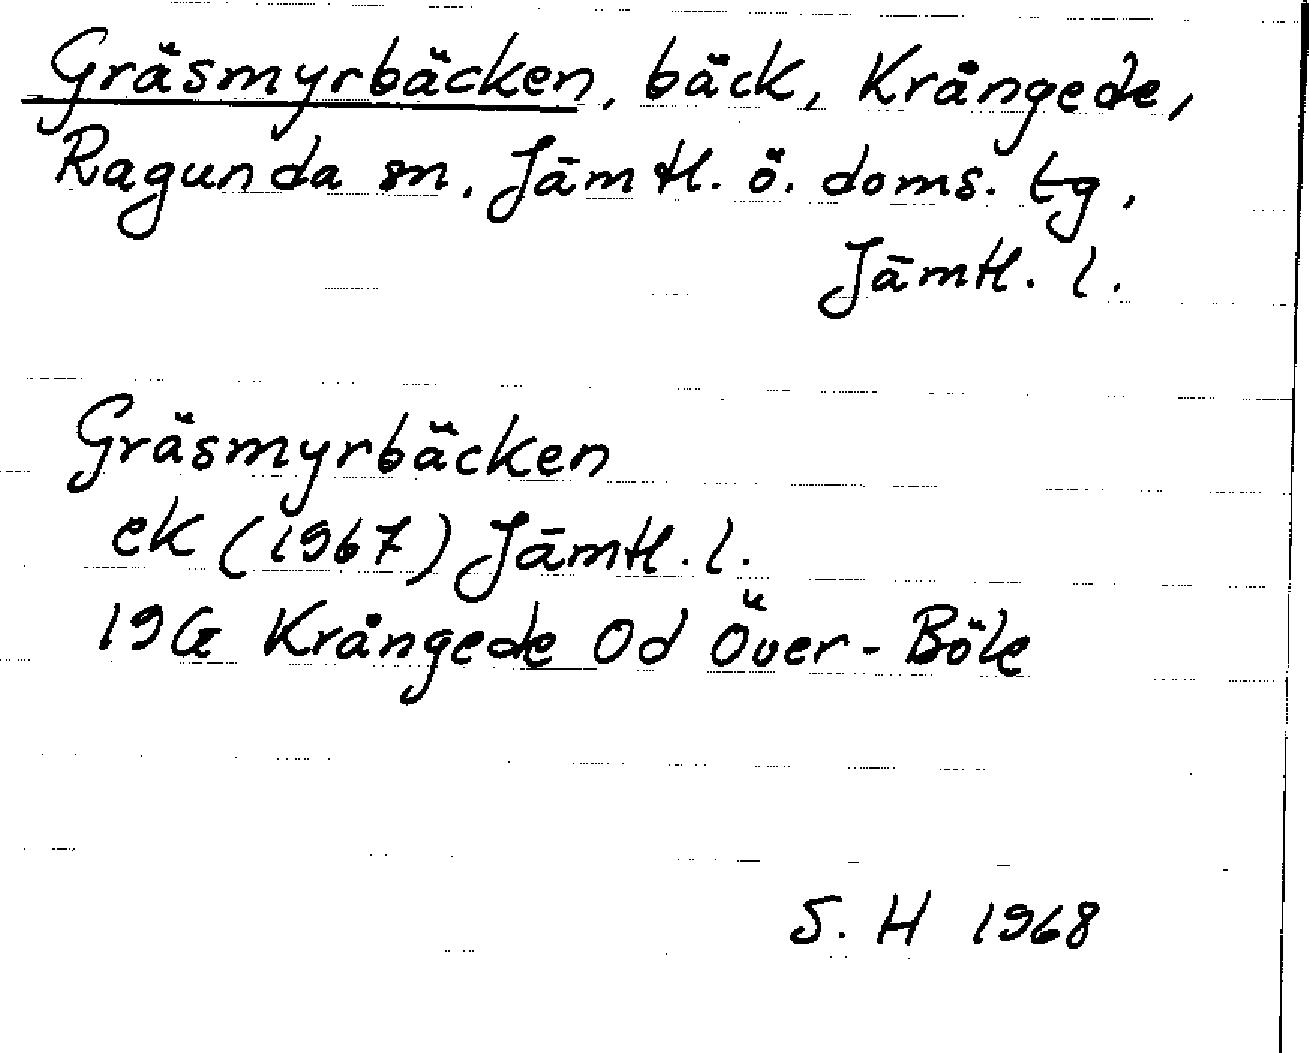 Gräsmyrbäcken, bäck, Krångede,
Ragunda sn. Jämtl. ö. doms. tg,
Jämtl. l.
Gräsmyrbäcken
ek (1967) Jämtl. l.
19G Krångede Od Över-Böle
S. H 1968